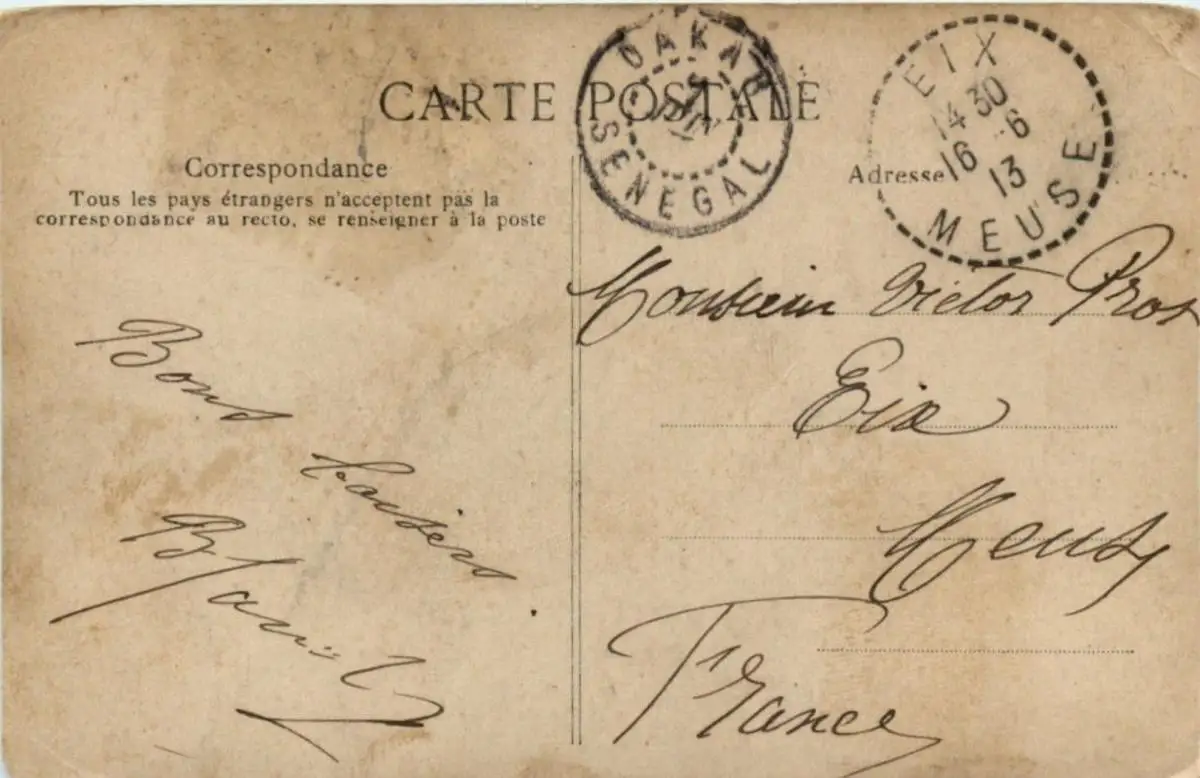 CARTE POSTALE
DAKAR
SENEGAL
EIX
14 30
16 .6
13
MEUSE
Correspondance
Tous les pays étrangers n'acceptent pas la
correspondance au recto, se renseigner à la poste
Adresse
Monsieur Victor Prot
Eix
Meuse
France
Bons baisers